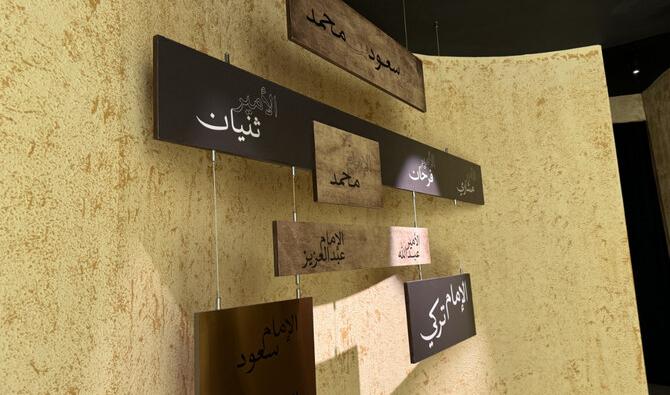 سعود محمد
الأمير
ثنيان
الأمير
محمد
الأمير
فرحان
الأمير
مشاري
الإمام
عبدالعزيز
الأمير
عبدالله
الإمام تركي
الإمام
سعود